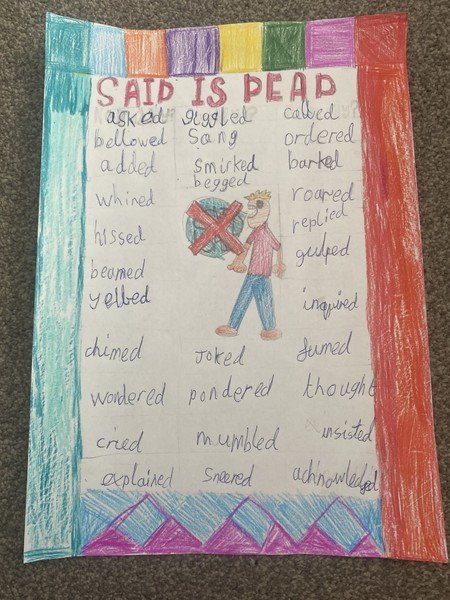 SAID IS DEAD
asked giggled called
bellowed Sang ordered
added smirked barked
begged
whined roared
replied
hissed gulped
beamed
yelled inquired
chimed Joked fumed
wondered pondered thought
cried mumbled insisted
explained sneered acknowledged